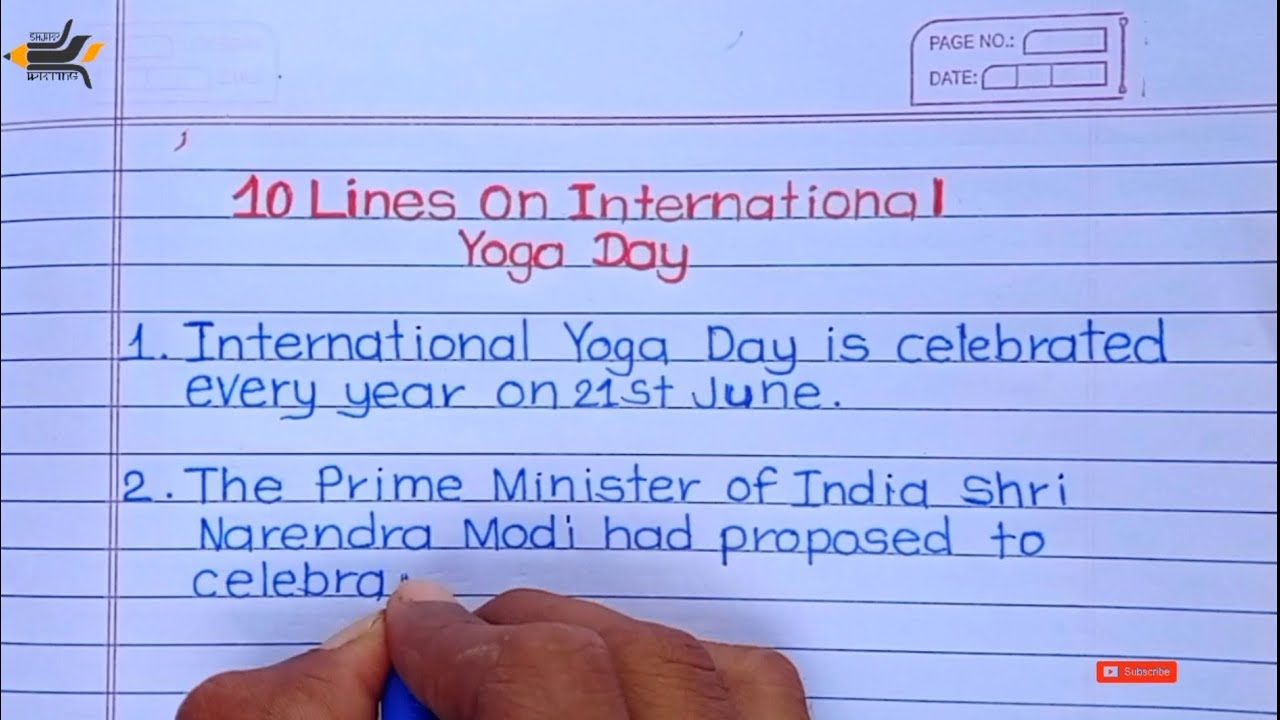 SHJAYY
WRITING
PAGE NO.:
DATE:
10 Lines On International
Yoga Day
1. International Yoga Day is celebrated
every year on 21st June.
2. The Prime Minister of India Shri
Narendra Modi had proposed to
celebra
Subscribe